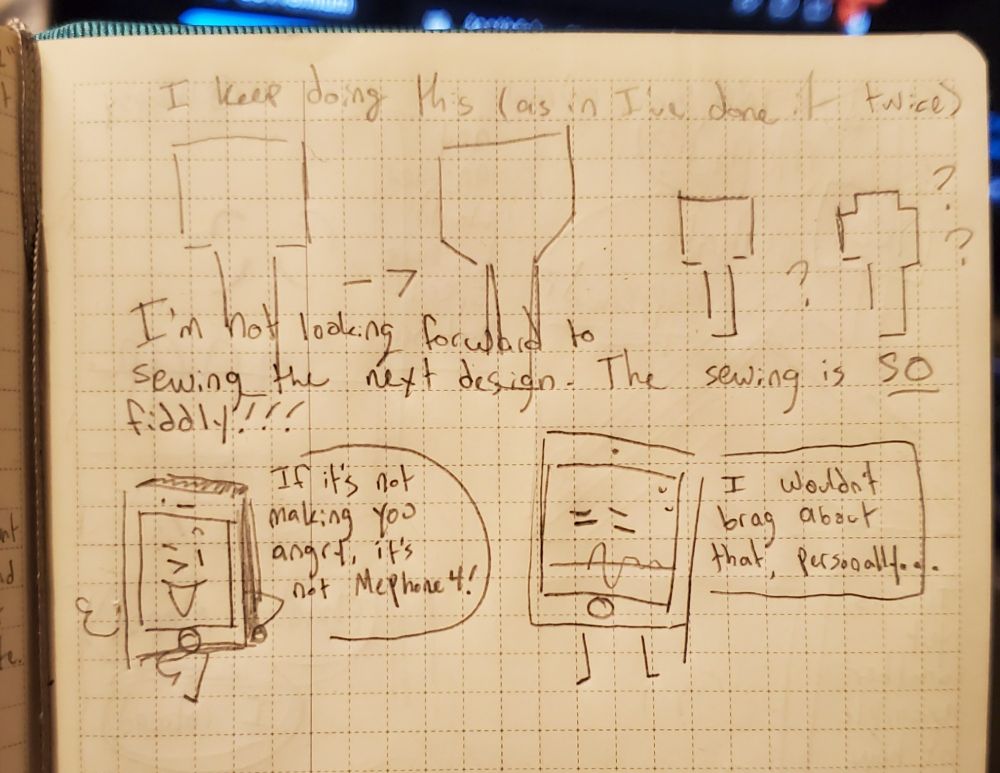 I keep doing this (as in I've done it twice)
?
?
?
I'm not looking forward to
sewing the next design. The sewing is SO
fiddly!!!
If it's not
making you
angry, it's
not Mephone4!
I wouldn't
brag about
that, personally...